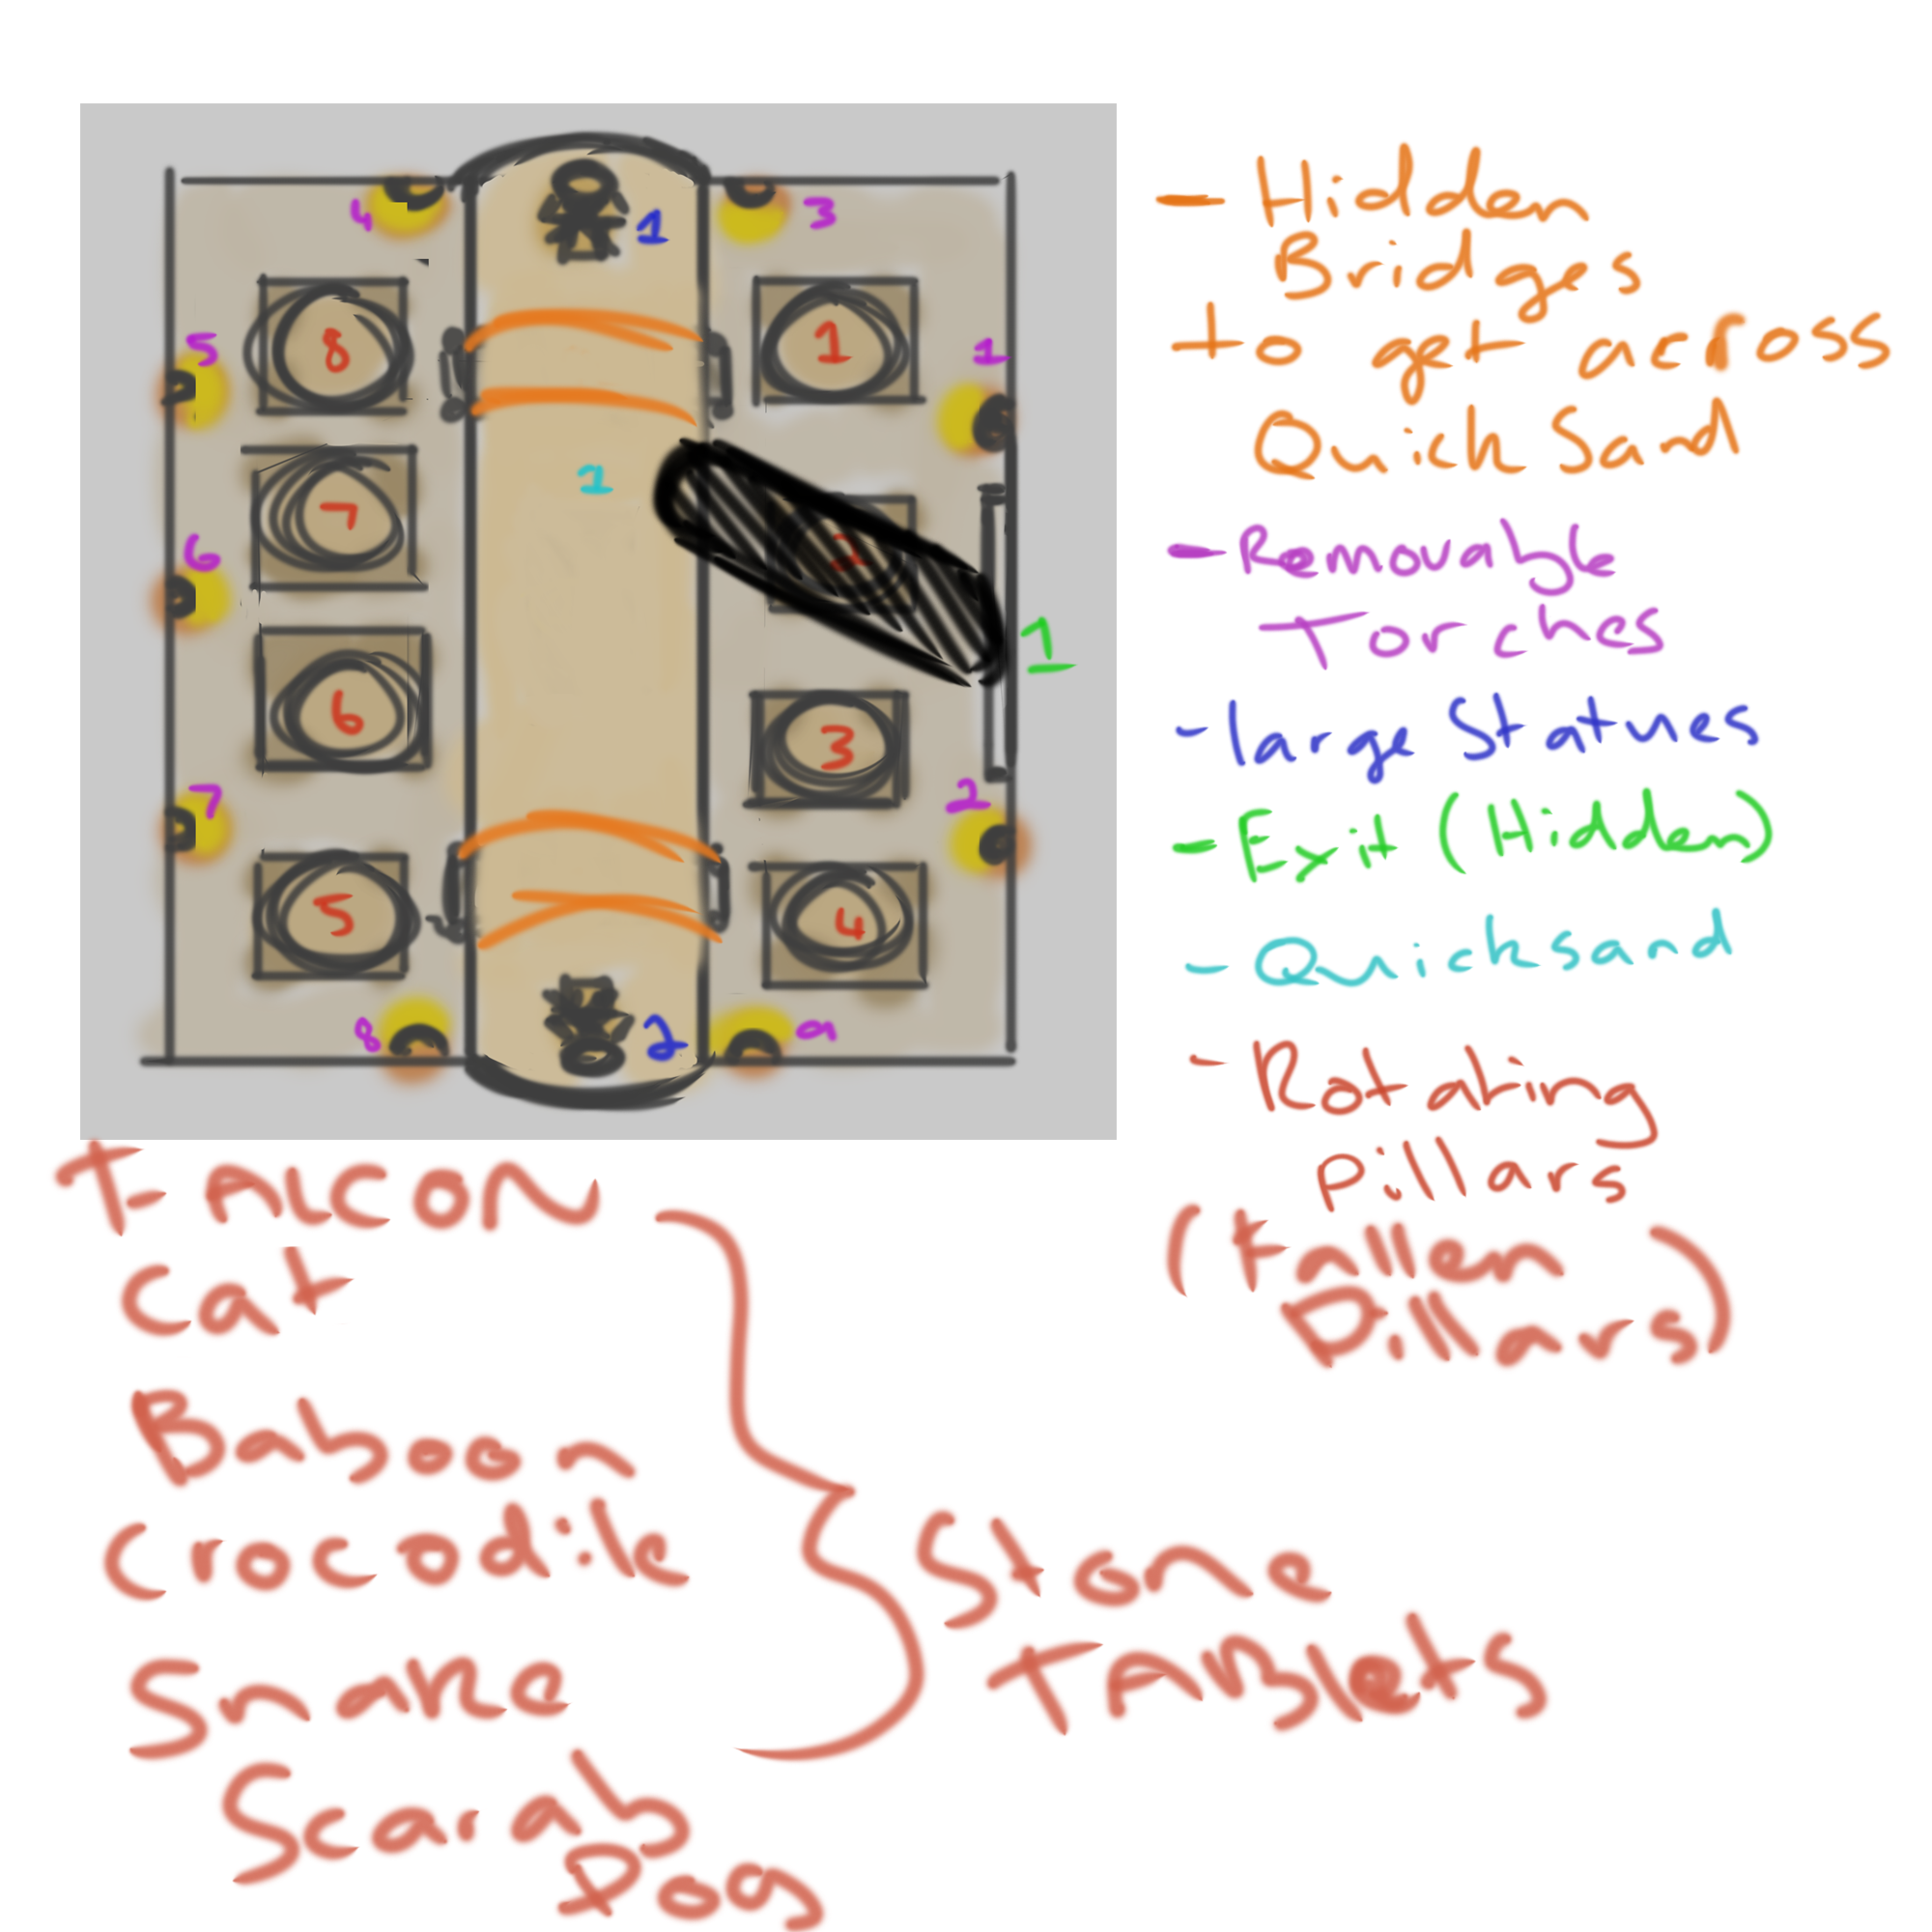 4
1
3
5
8
1
1
1
7
2
6
1
6
3
7
2
5
4
8
2
9
- Hidden
Bridges
to get across
QuickSand
- Removable
Torches
- large Statues
- Exit (Hidden)
- Quicksand
- Rotating
Pillars
(Fallen
Pillars)
FALCON
Cat
Baboon
Crocodile
Snake
Scarab
Dog
Stone
TAblets